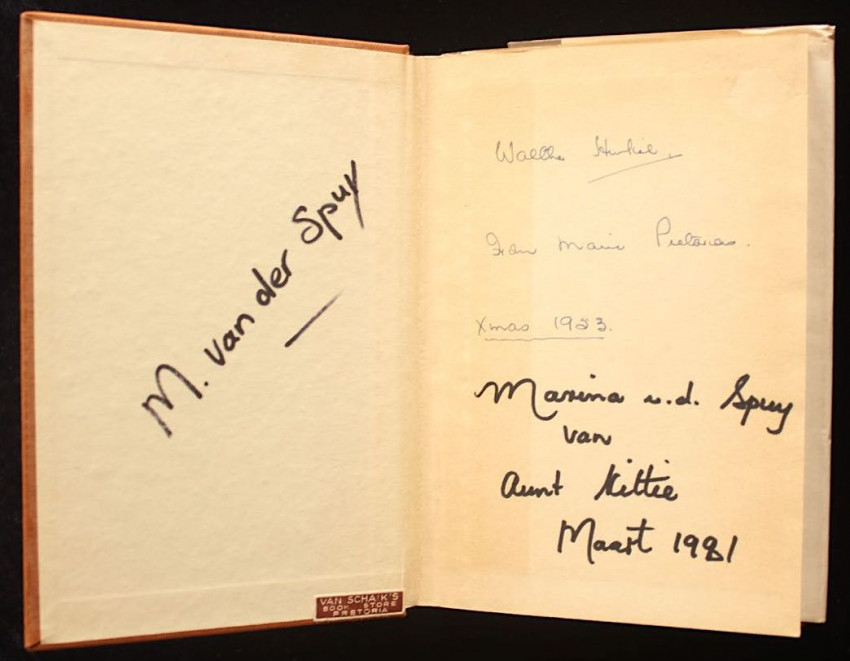 M. van der Spuy
VAN SCHAIK'S
BOOK STORE
PRETORIA
Maria Pretorius.
Xmas 1953.
Marina v.d. Spuy
van
Aunt Kittie
Maart 1981